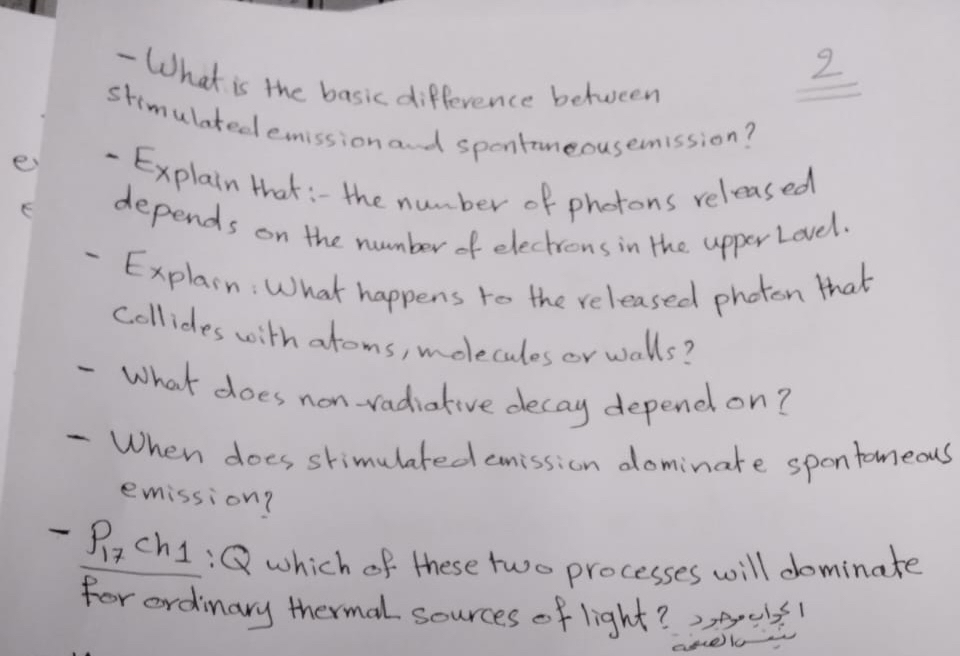 2
- What is the basic difference between
stimulated emission and spontaneous emission?
- Explain that :- the number of photons released
depends on the number of electrons in the upper Level.
- Explain : What happens to the released photon that
Collides with atoms, molecules or walls?
- What does non-radiative decay depend on?
- When does stimulated emission dominate spontaneous
emission?
- P17 ch1 : Q which of these two processes will dominate
for ordinary thermal sources of light? الجواب موجود
بنفس الصفحة